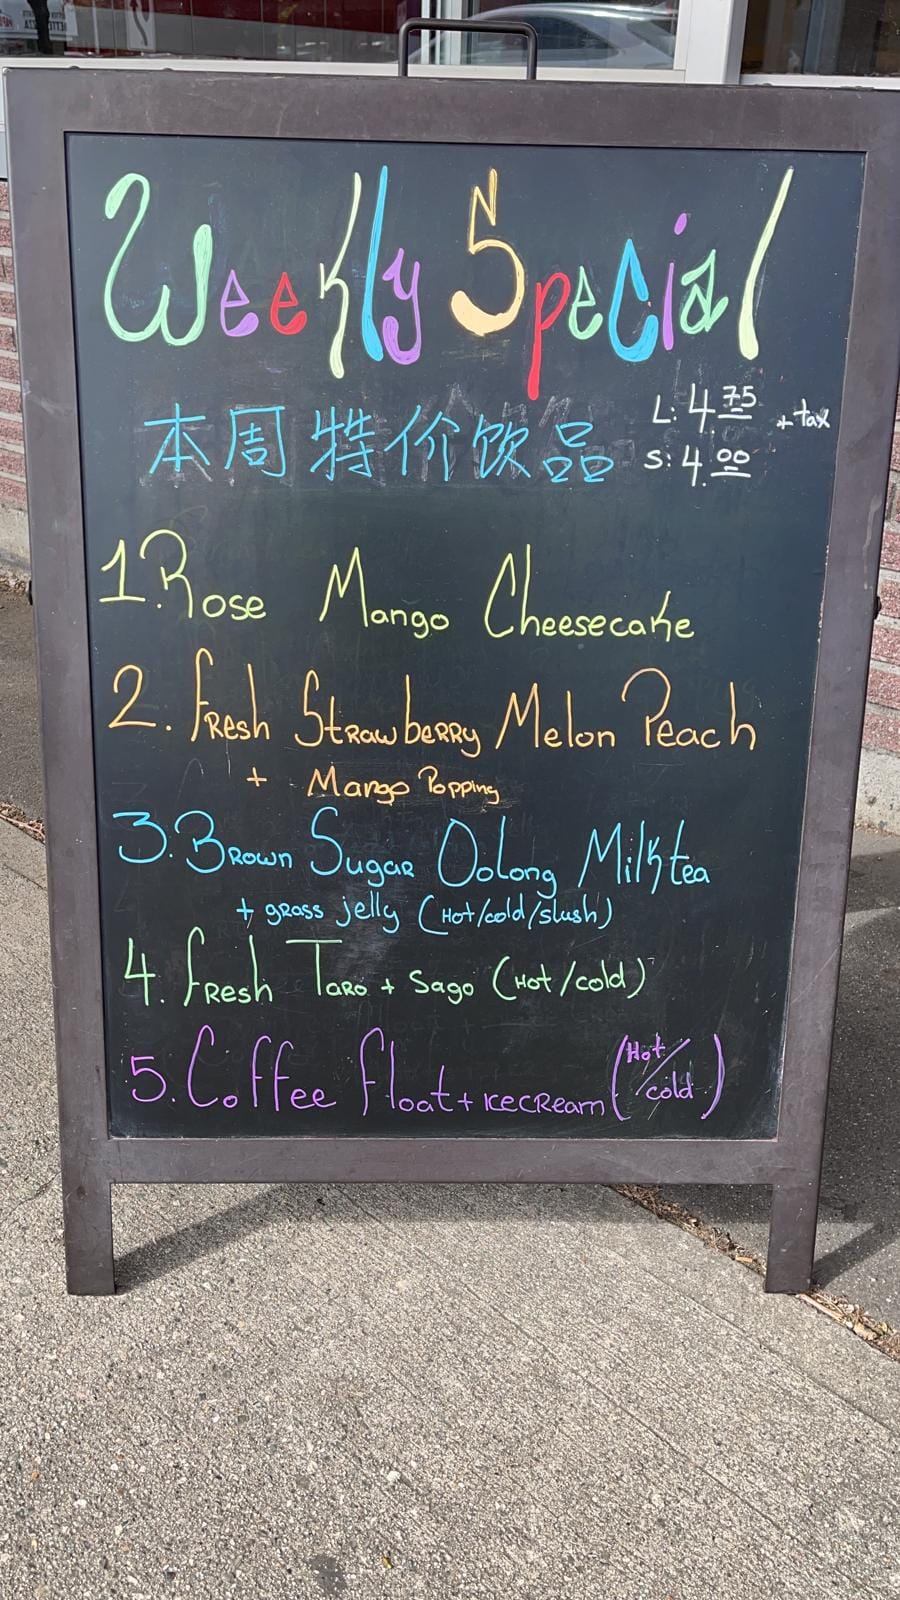 Weekly Special
本周特价饮品
L: 4.75 + tax
S: 4.00
1. Rose Mango Cheesecake
2. Fresh Strawberry Melon Peach
+ Mango Popping
3. Brown Sugar Oolong Milk tea
+ grass jelly (Hot/cold/slush)
4. Fresh Taro + Sago (Hot/cold)
5. Coffee Float + icecream (Hot/cold)